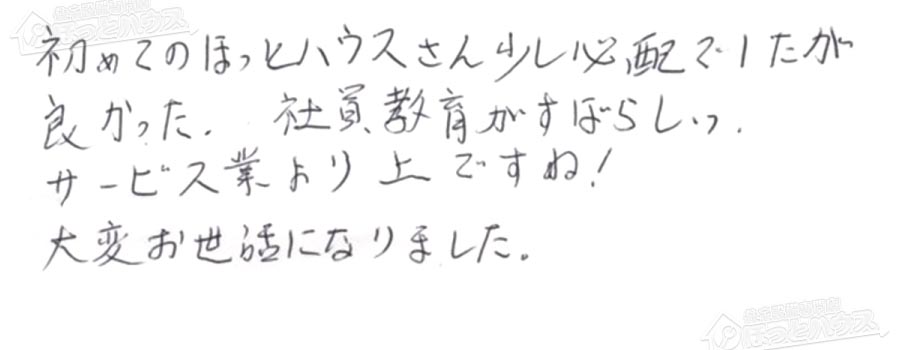 初めてのほっとハウスさん少し必配でしたが
良かった. 社員教育がすばらしいっ.
サービス業より上ですね!
大変お世話になりました。
ほっとハウス
ほっとハウス